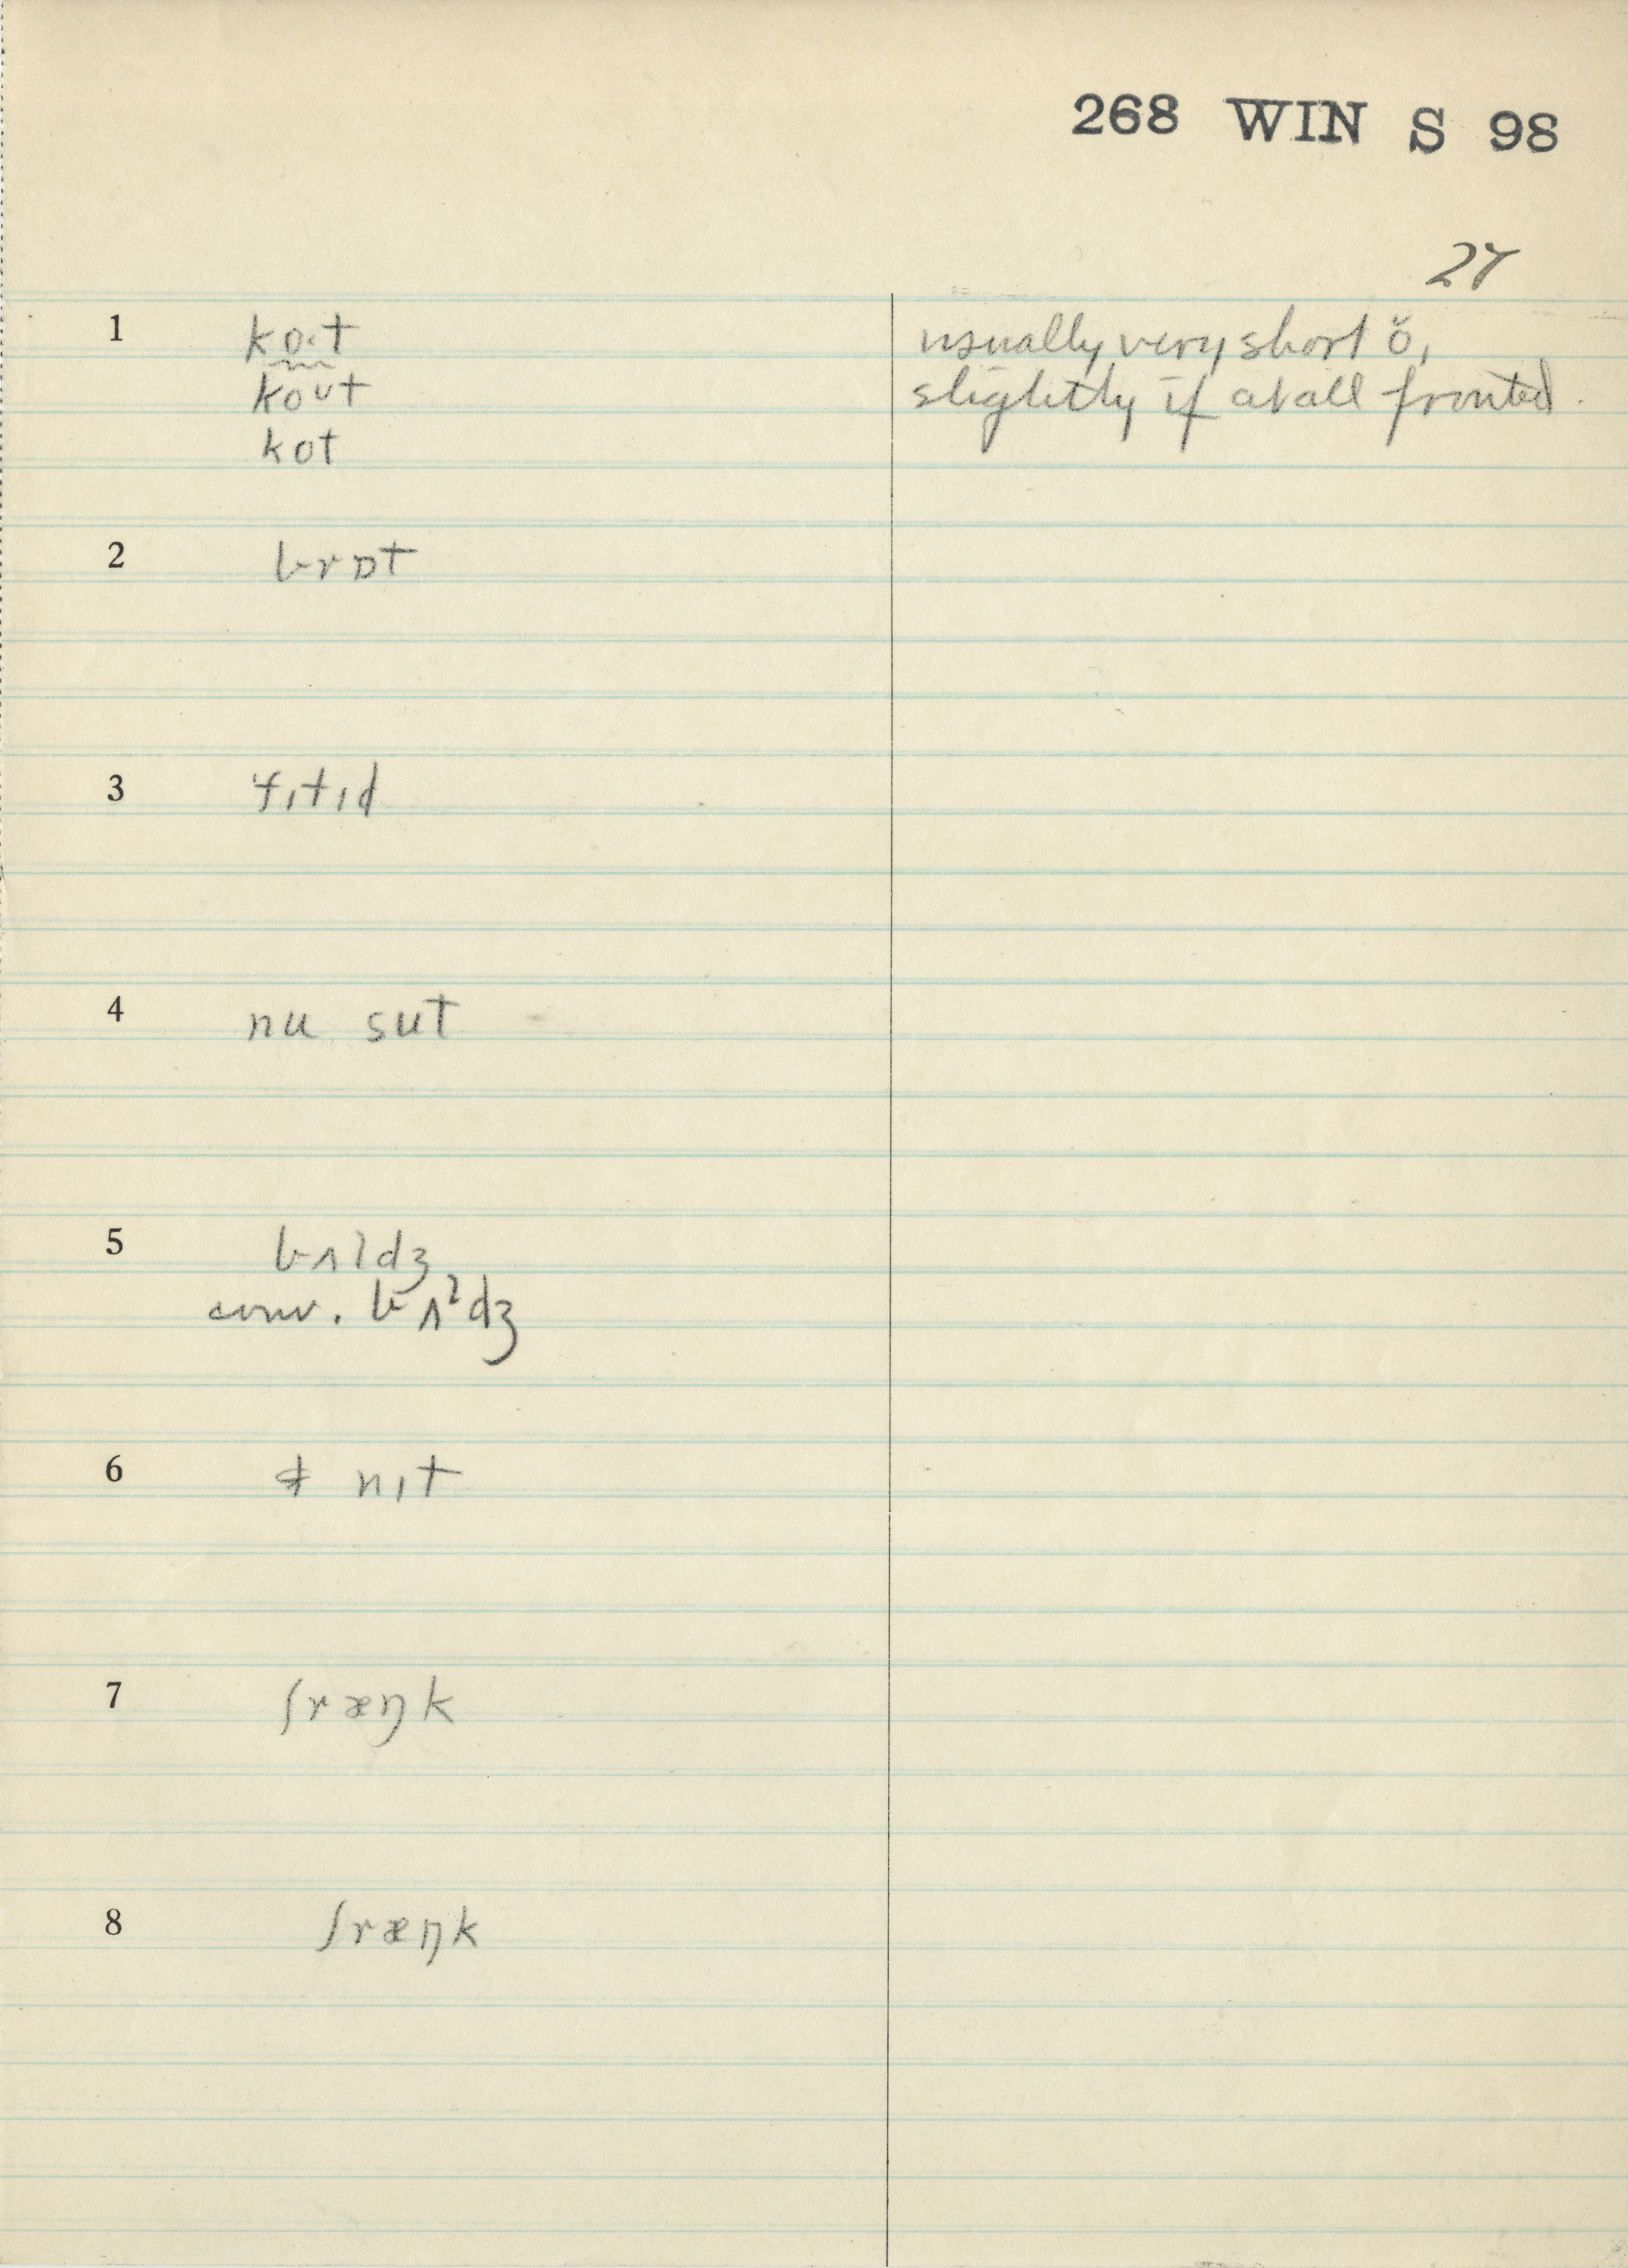 268 WIN S 98
27
1 ko.t usually very short ŏ,
koʊt slightly if at all fronted.
kot
2 brɒt
3 fɪtɪd
4 nu sut
5 bʌldʒ
conv. bʌˡdʒ
6 nɪt
7 ʃræŋk
8 ʃræŋk